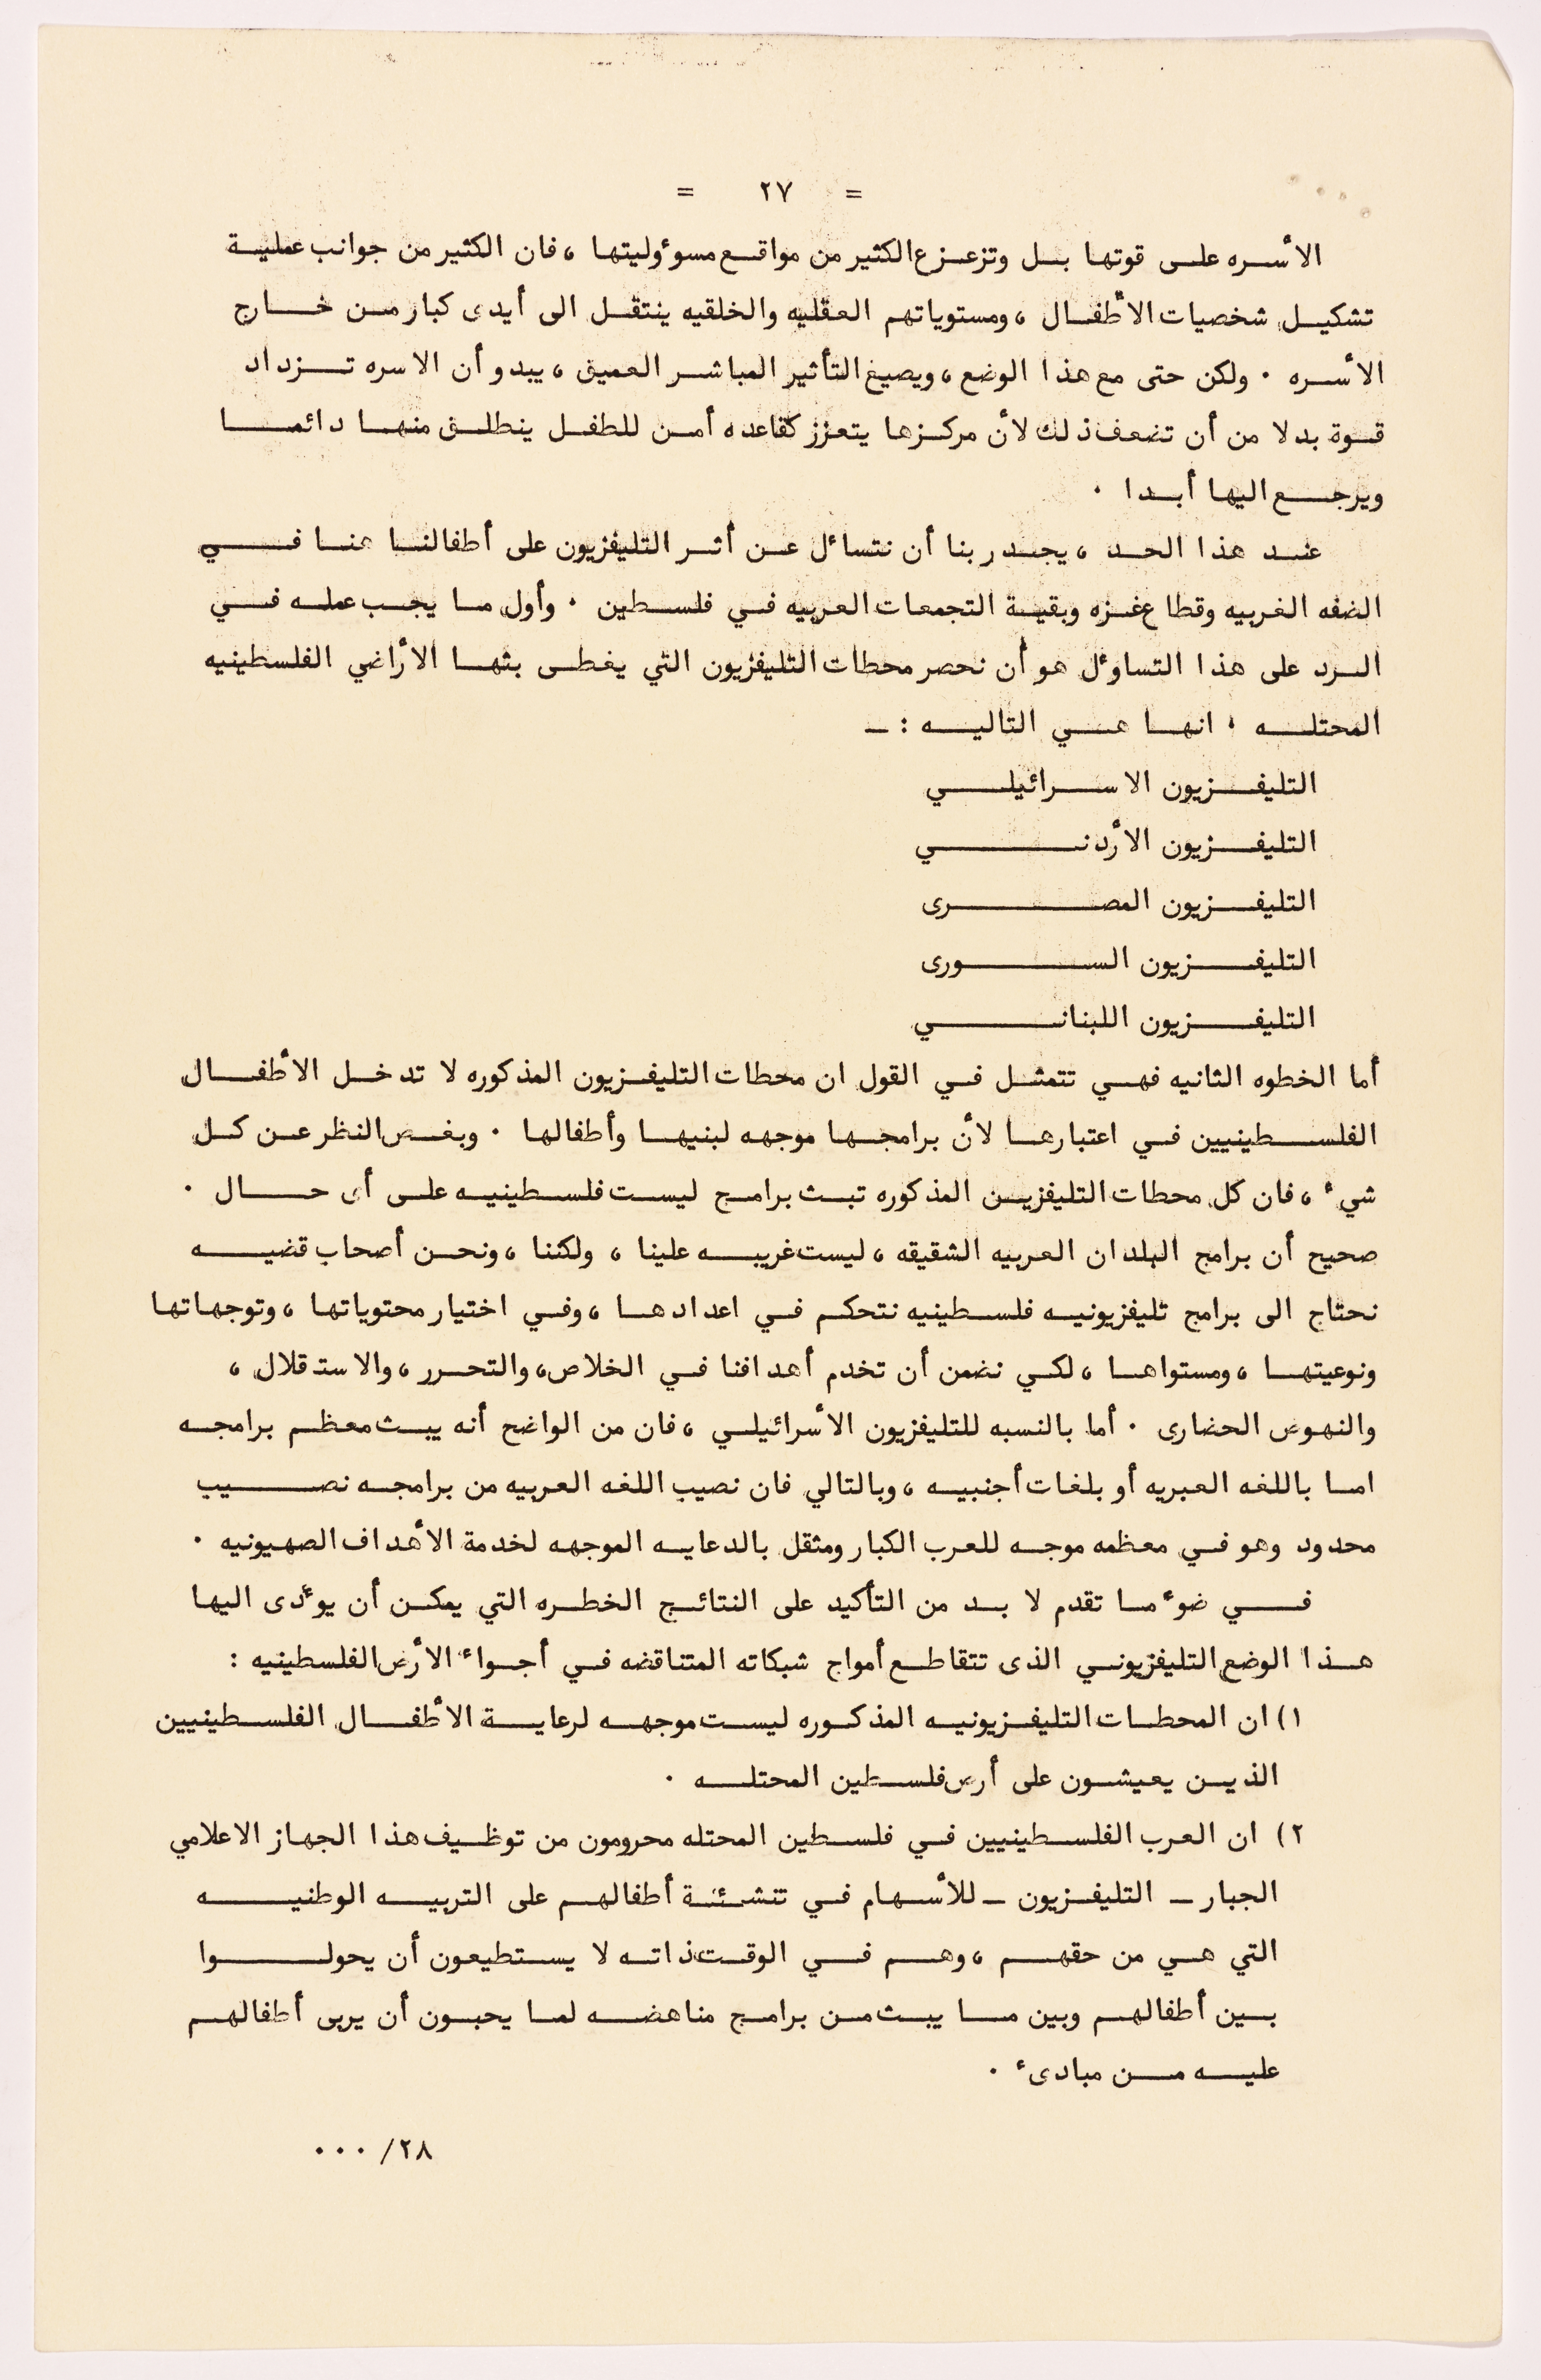 = ٢٧ =
الأسره على قوتها بل وتزعزع الكثير من مواقع مسوؤوليتها ، فان الكثير من جوانب عملية
تشكيل شخصيات الأطفال ، ومستوياتهم العقليه والخلقيه ينتقل الى أيدى كبار من خارج
الأسره . ولكن حتى مع هذا الوضع ، وبصيغ التأثير المباشر العميق ، يبدو أن الاسره تزداد
قوة بدلا من أن تضعف ذلك لأن مركزها يتعزز كقاعده أمن للطفل ينطلق منها دائما
ويرجع اليها أبدا .
عند هذا الحد ، يجدر بنا أن نتسائل عن أثر التليفزيون على أطفالنا هنا في
الضفه الغربيه وقطاع غزه وبقية التجمعات العربيه في فلسطين . وأول ما يجب عمله في
الرد على هذا التساوئل هو أن نحصر محطات التليفزيون التي يغطى بثها الأراضي الفلسطينيه
المحتله ، انها هي التاليه : ــ
التليفزيون الاسرائيلي
التليفزيون الأردني
التليفزيون المصرى
التليفزيون السورى
التليفزيون اللبناني
أما الخطوه الثانيه فهي تتمثل في القول ان محطات التليفزيون المذكوره لا تدخل الأطفال
الفلسطينيين في اعتبارها لأن برامجها موجهه لبنيها وأطفالها . وبغض النظر عن كل
شيء ، فان كل محطات التليفزين المذكوره تبث برامج ليست فلسطينيه على أى حال .
صحيح أن برامج البلدان العربيه الشقيقه ، ليست غريبه علينا ، ولكننا ، ونحن أصحاب قضيه
نحتاج الى برامج تليفزيونيه فلسطينيه نتحكم في اعدادها ، وفي اختيار محتوياتها ، وتوجهاتها
ونوعيتها ، ومستواها ، لكي نضمن أن تخدم أهدافنا في الخلاص ، والتحرر ، والاستقلال ،
والنهوض الحضارى . أما بالنسبه للتليفزيون الأسرائيلي ، فان من الواضح أنه يبث معظم برامجه
اما باللغه العبريه أو بلغات أجنبيه ، وبالتالي فان نصيب اللغه العربيه من برامجه نصيب
محدود وهو في معظمه موجه للعرب الكبار ومثقل بالدعايه الموجهه لخدمة الأهداف الصهيونيه .
في ضوء ما تقدم لا بد من التأكيد على النتائج الخطره التي يمكن أن يوئدى اليها
هذا الوضع التليفزيوني الذى تتقاطع أمواج شبكاته المتناقضه في أجواء الأرض الفلسطينيه :
١) ان المحطات التليفزيونيه المذكوره ليست موجهه لرعاية الأطفال الفلسطينيين
الذين يعيشون على أرض فلسطين المحتله .
٢) ان العرب الفلسطينيين في فلسطين المحتله محرومون من توظيف هذا الجهاز الاعلامي
الجبار ــ التليفزيون ــ للأسهام في تنشئة أطفالهم على التربيه الوطنيه
التي هي من حقهم ، وهم في الوقت ذاته لا يستطيعون أن يحولوا
بين أطفالهم وبين ما يبث من برامج مناهضه لما يحبون أن يربى أطفالهم
عليه من مبادىء .
٢٨/ ...